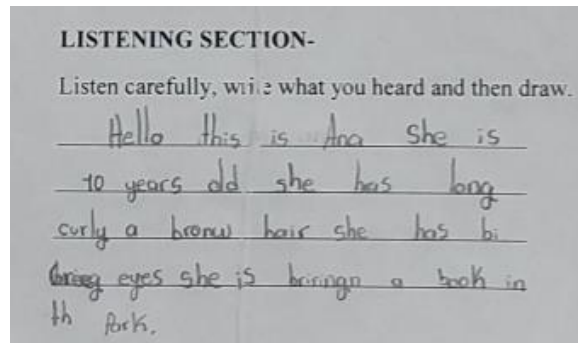 LISTENING SECTION-
Listen carefully, write what you heard and then draw.
Hello this is Ana She is
10 years old she has long
curly a bronw hair she has bi
eyes she is bringn a book in
th Park.